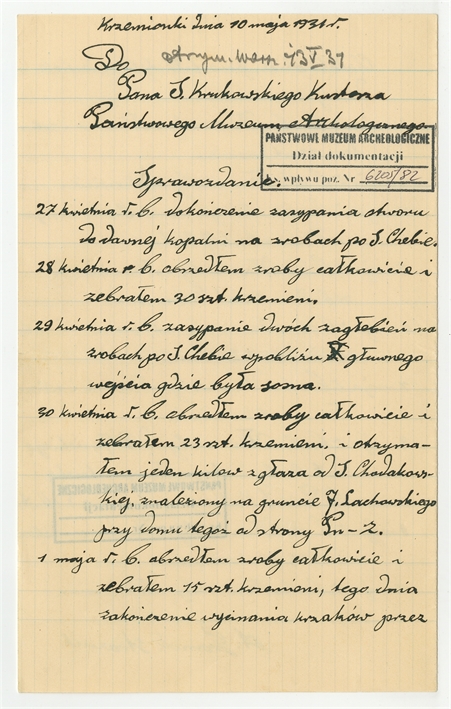 Krzemionki dnia 10 maja 1931 r.
otrzym. Warsz. 13 V 31
Do
Pana S. Krukowskiego Kustosza
Państwowego Muzeum Archologicznego
PAŃSTWOWE MUZEUM ARCHEOLOGICZNE
Dział dokumentacji
Ks. wpływu poz. Nr 6205/82
Sprawozdanie.
27 kwietnia r. b. dokończenie zasypania otworu
do dawnej kopalni na zrobach po S. Chebie.
28 kwietnia r. b. obrzedłem zroby całkowicie i
zebrałem 30 szt. krzemieni.
29 kwietnia r. b. zasypanie dwóch zagłębień na
zrobach po S. Chebie wpobliżu głównego
wejścia gdzie była sosna.
30 kwietnia r. b. obrzedłem zroby całkowicie i
zebrałem 23 szt. krzemieni, i otrzyma-
łem jeden kilow z głaza od S. Chodakows-
kiej, znaleziony na gruncie J. Lachowskiego
przy domu tegoż od strony Pn-Z.
1 maja r. b. obrzedłem zroby całkowicie i
zebrałem 15 szt. krzemieni, tego dnia
zakończenie wycinania krzaków przez